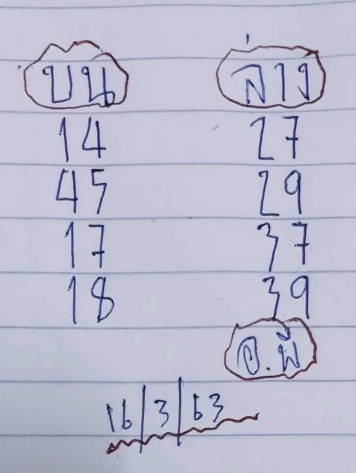 บน ล่าง
14 27
45 29
17 37
18 39
อ.พี
16/3/63